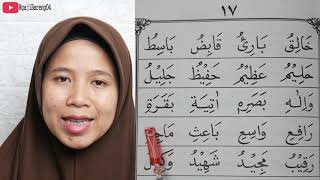 Ngaji Bareng04
١٧
خَالِقُ بَارِئُ قَابِضُ بَاسِطُ
حَلِيْمُ عَظِيْمُ حَفِيْظُ جَلِيْلُ
وَاِلٰهِ بَصَرِهِ اٰتِيَةِ بَقَرَةِ
رَافِعِ وَاسِعِ بَاعِثِ
رَقِيْبُ مَجِيْدُ شَهِيْدُ